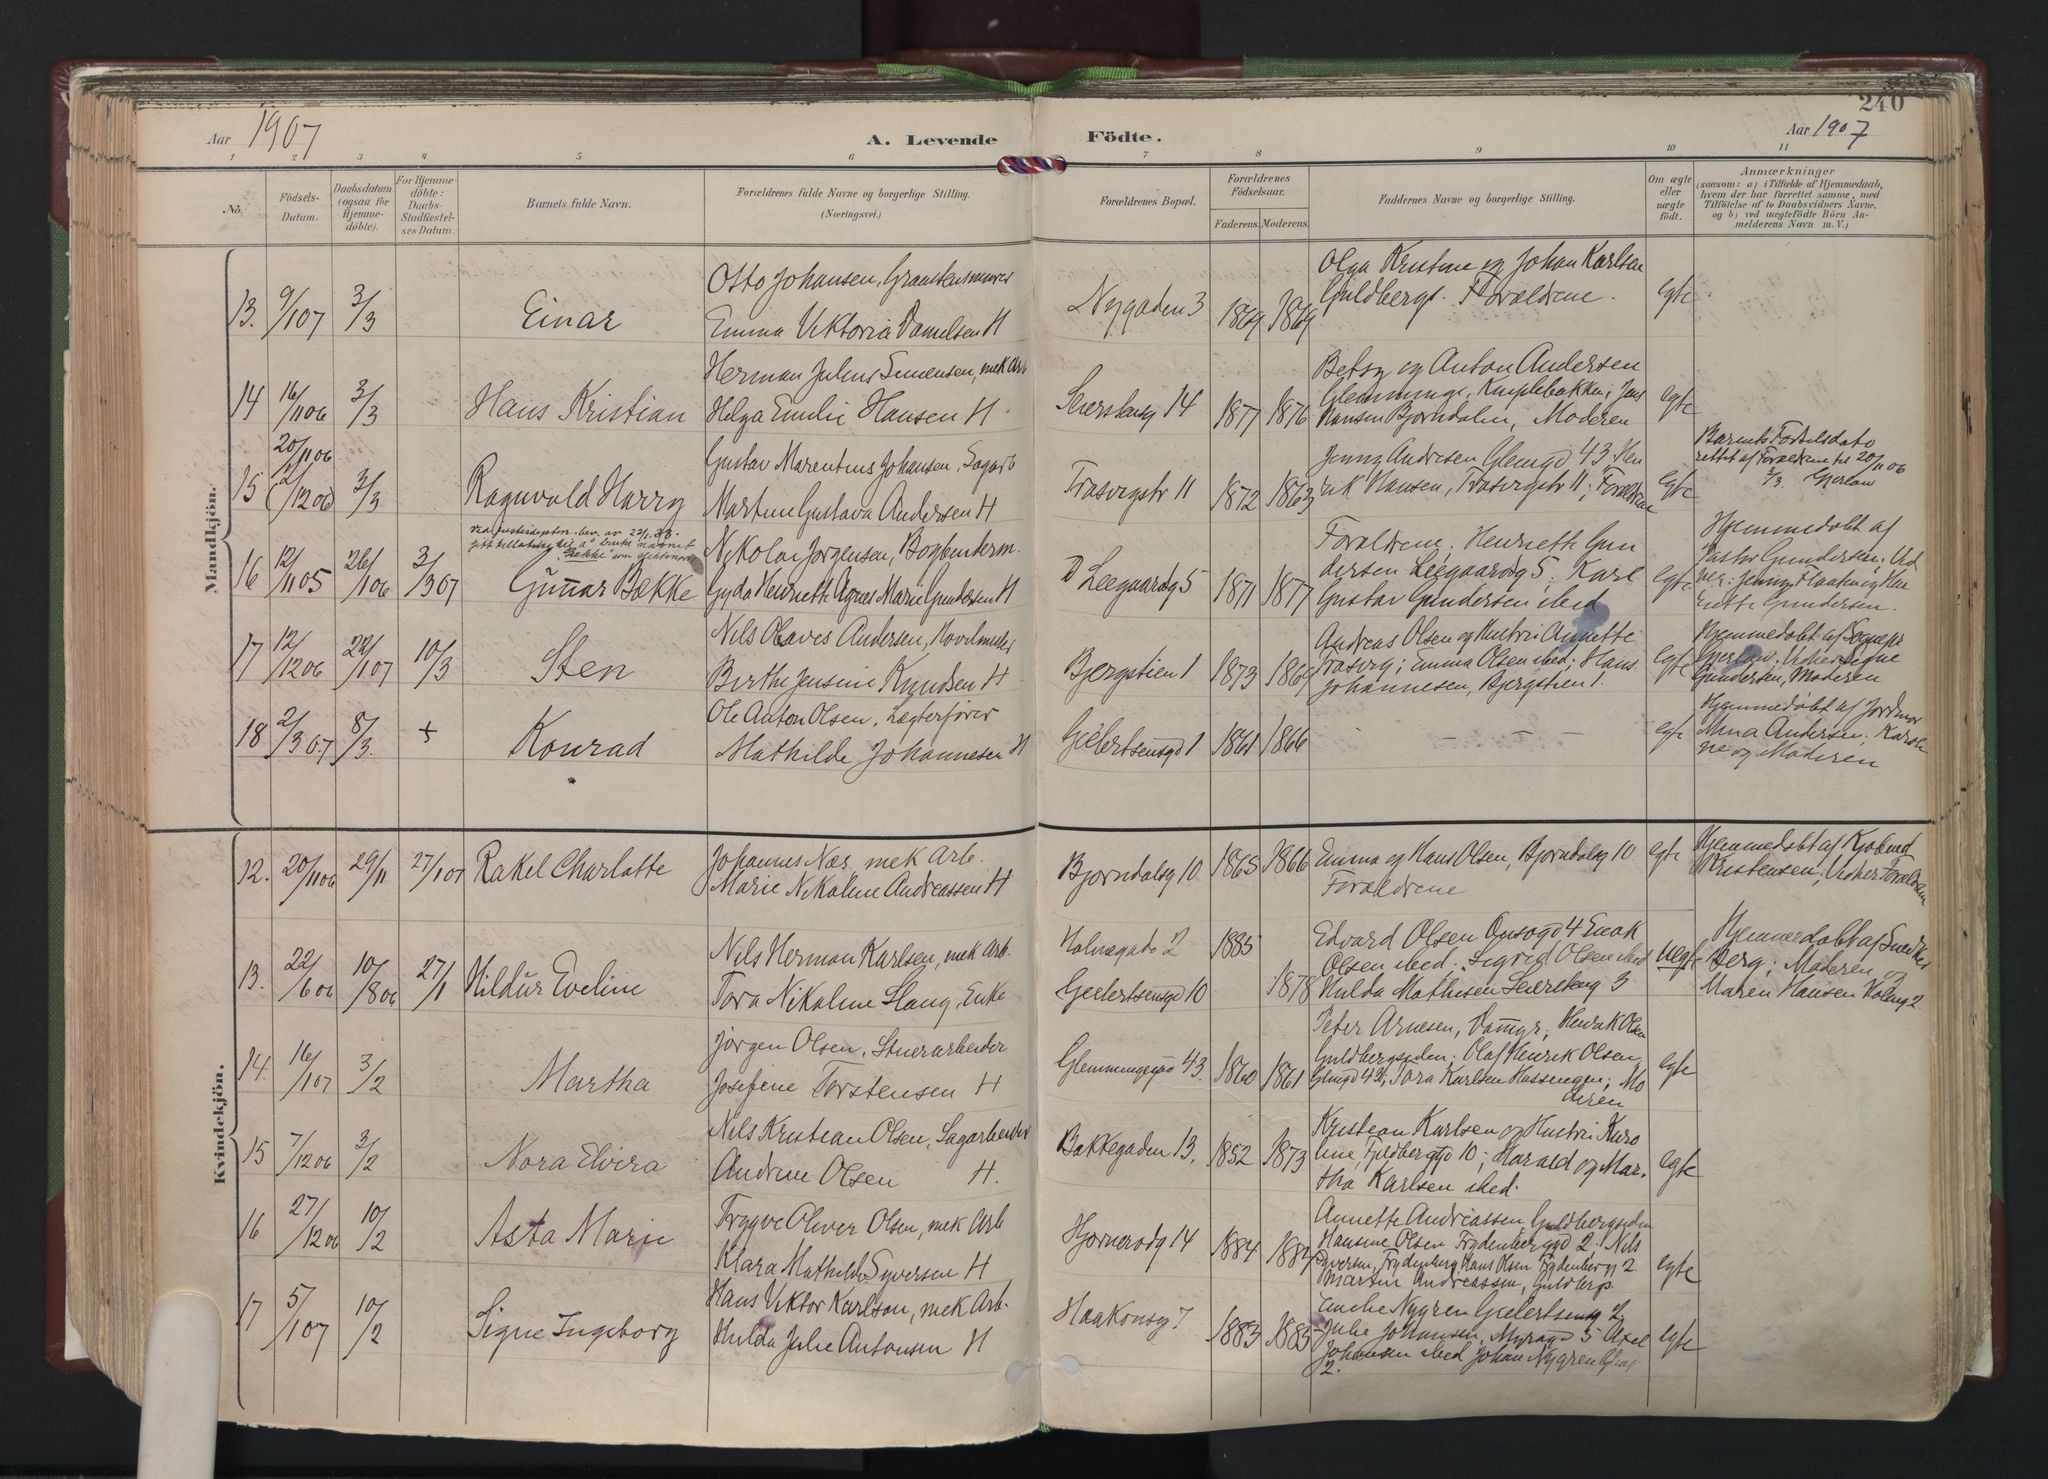 240
Aar 1907
A. Levende Födte.
Aar 1907
1 2 3 4 5 6 7 8 9 10 11
No.
Födsels-
Datum.
Daabsdatum
(ogsaa for
Hjemme-
döbte).
For Hjemme-
döbte:
Daabs-
Stadfæstel-
ses Datum.
Barnets fulde Navn.
Forældrenes fulde Navne og borgerlige Stilling.
(Næringsvei.)
Forældrenes Bopæl.
Forældrenes
Födselsaar.
Faderens. Moderens.
Faddernes Navne og borgerlige Stilling.
Om ægte
eller
uægte
födt.
Anmærkninger
(saasom: a) i Tilfælde af Hjemmedaab,
hvem der har forrettet samme, med
Tilföielse af to Daabsvidners Navne,
og b) ved uægtefödte Börn An-
melderens Navn m. V.)
Mandkjön.
13. 9/107 3/3 Einar
Otto Johansen,
Emma Viktoria Danielsen H
Nygaden 3 1869 1869
Olga Kristine og Johan Karlsen
Guldbergs. Forældrene.
egte
14 16/1106 3/3 Hans Kristian
Herman Julius Simensen, mek Arb
Helga Emilie Hansen H
14 1877 1876
Betsy og Anton Andersen
Glemminge, Kniplebakken, Jens
Hansen Bjorndalen, Moderen
egte
20/1106
15 (2/1206 3/3 Ragnvald Harry
Gustav Marentius Johansen, Sagarb
Martine Gustava Andersen H
Trosvigstr 11 1872 1863
Jenny Andresen Glemgd 43; Hen
rik Hansen, Trosvigstr 11; Forældrene
egte
Barnets Fodselsdato
rettet af Forældrene til 20/1106
3/3. Gjerløw
av 22/1.38
16 12/1105 26/106 3/307 Gunar Bække
Nikolai Jörgensen, Bogbinderm.
Gyda Henriette Agnes Marie Gundersen H
Leegaardsg 5 1871 1877
Forældrene. Henriette Gun
dersen Leegaardsg 5. Karl
Gustav Gundersen ibid
egte
Hjemmedobt af
Pastor Gundersen. Vid
ner: Jenny Flaatvig Hen
riette Gundersen.
17 12/1206 22/107 10/3 Sten
Nils Olaves Andersen, Hovelmester
Birthe Jensine Knudsen H
Bjergstien 1 1873 1869
Andreas Olsen og Hustru Annette
Trosvig; Emma Olsen ibid; Hans
Johannesen, Bjergstien 1.
egte
Hjemmedobt af Sognepr
Gjerløw. Vidner Signe
Gundersen, Moderen
18 2/307 8/3. + Konrad
Ole Anton Olsen, Lægterfører
Mathilde Johannesen H
Gielertsensgd 1 1861 1866
- - - -
egte
Hjemmedobt af Jordmor
Mina Andersen. Karoli
ne og Moderen
Kvindekjön.
12. 20/1106 29/11 27/107 Rakel Charlotte
Johannes Næs, mek Arb.
Marie Nikoline Andreassen H
Bjorndalsg 10 1865 1866
Emma og Hans Olsen, Bjorndalsg 10
Forældrene
egte
Hjemmedobt af Kjobmd
Kristensen; Vidner Forældrene
13. 22/606 10/806 27/1 Hildur Eveline
Nils Herman Karlsen, mek Arb.
Tora Nikoline Slang, Enke
Holmegade 2 1885
Gielertsensgd 10 1878
Edvard Olsen Onsogd 4 Enok
Olsen ibid; Sigrid Olsen ibid
Hulda Mathisen Seierstensg 3
uegte
Hjemmedobt af Snedker
Berg; Moderen og
Maren Hansen Holmg 2
14. 16/107 3/2 Martha
Jörgen Olsen, Stuerarbeider
Josefine Torstensen H
Glemmingegd 43. 1860 1861
Peter Arnesen, Damyr; Henrik Olsen
Guldbergsiden; Olaf Henrik Olsen
Glmgd 43; Tora Karlsen Hassengen; Mo
deren
egte
15 7/1206 3/2 Nora Elvira
Nils Kristian Olsen, Sagarbeider
Andrine Olsen H.
Bakkegaden 13. 1852 1873
Kristian Karlsen og Hustru Karo
line, Fjeldberggd 10; Harald og Mar-
tha Karlsen ibid.
egte
16 27/1206 10/2 Asta Marie
Tryggve Oliver Olsen, mek Arb
Klara Mathilde Syversen H
Hjornerodg 14 1884 1884
Annette Andreassen, Guldbergsiden
Hansine Olsen Frydenberggd 2. Nils
Syversen, Frydenberg, Hans Olsen Frydenberg 2
Martin Andreassen, Guldbergs.
egte
17 5/107 10/2 Signe Ingeborg
Hans Viktor Karlson, mek Arb.
Hulda Julie Antonsen H
Haakonsg 7 1883 1885
Emilie Nygren Gielertsensg 2
Julie Johansen, Myragd 5 Axel
Johansen ibid Johan Nygren
2.
egte